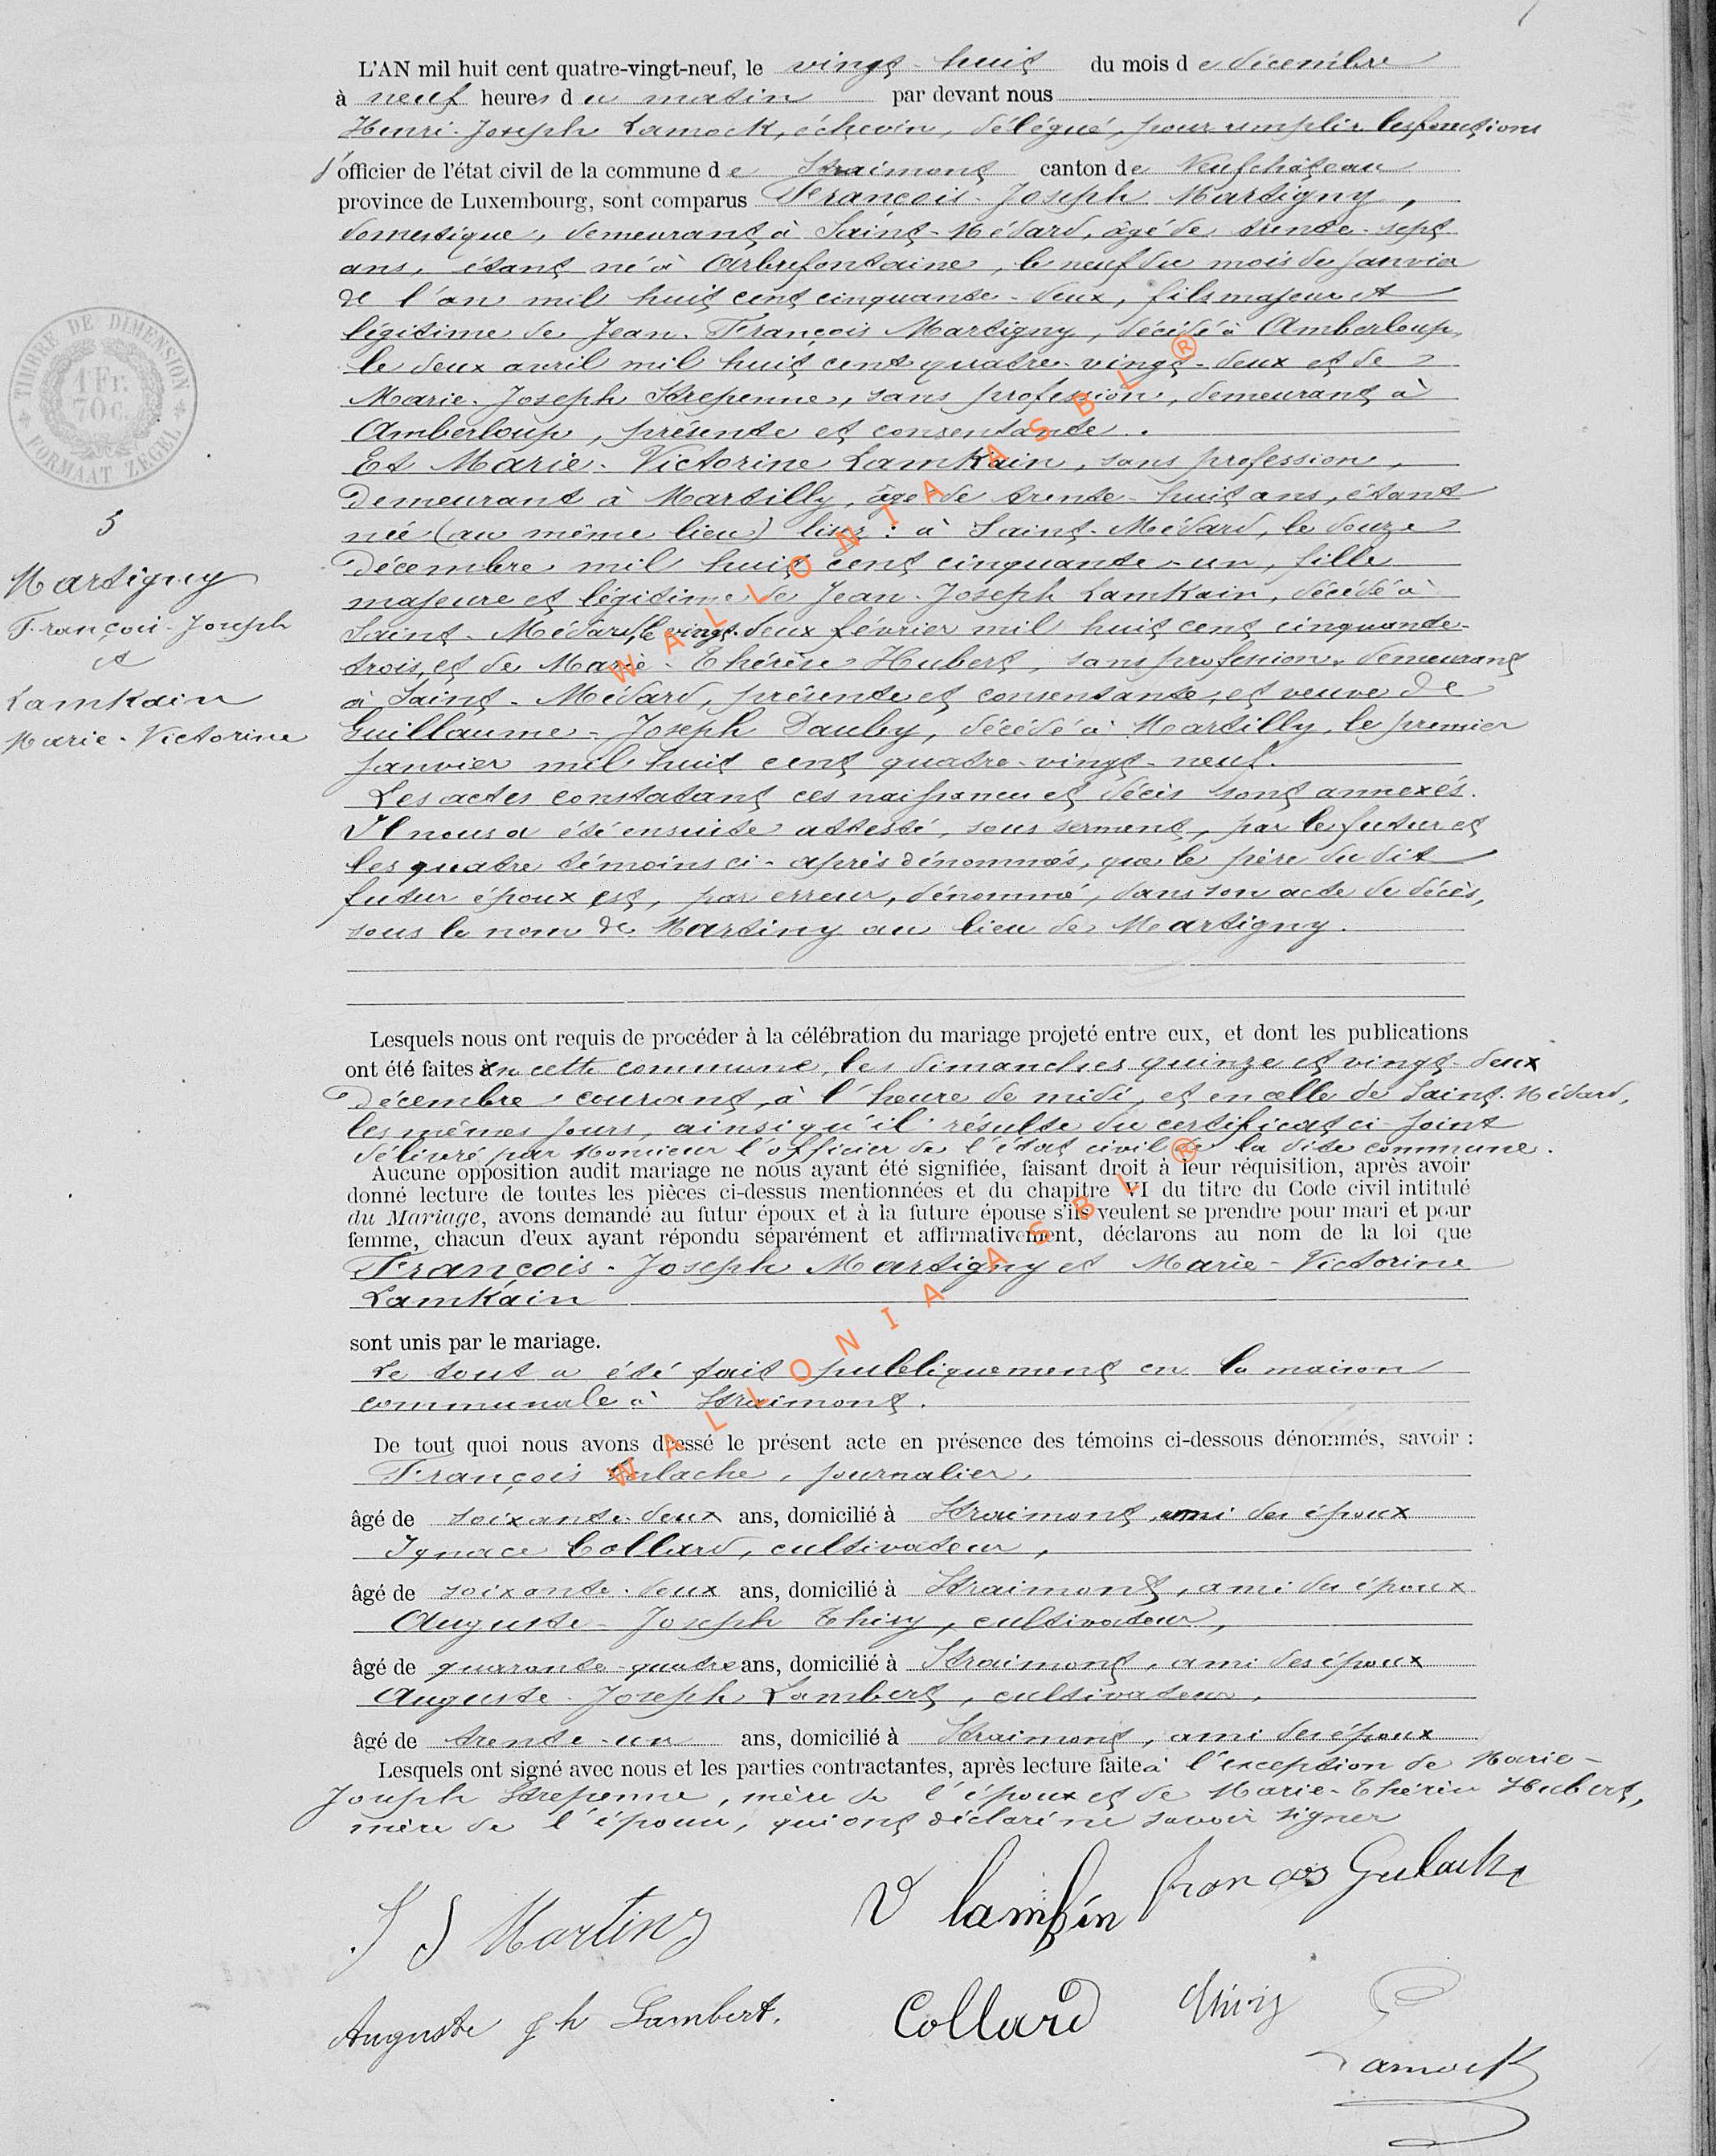 L'AN mil huit cent quatre-vingt-neuf, le vingt-huit du mois de décembre
à neuf heures du matin par devant nous
Henri-Joseph Lamock, échevin, délégué, pour remplir les fonctions
d'officier de l'état civil de la commune de Straimont canton de Neufchâteau
province de Luxembourg, sont comparus François-Joseph Martigny,
domestique, demeurant à Saint-Médard, âgé de trente-sept
ans, étant né à Arbrefontaine, le neuf du mois de janvier
de l'an mil huit cent cinquante-deux, fils majeur et
légitime de Jean-François Martigny, décédé à Amberloup,
le deux avril mil huit cent quatre-vingt-deux et de
Marie-Joseph Strepenne, sans profession, demeurant à
Amberloup, présente et consentante.
Et Marie-Victorine Lamkain, sans profession,
demeurant à Martilly, âgée de trente-huit ans, étant
née (au même lieu) lisez : à Saint-Médard, le douze
décembre mil huit cent cinquante-un, fille
majeure et légitime de Jean-Joseph Lamkain, décédé à
Saint-Médard, le vingt-deux février mil huit cent cinquante-
trois, et de Marie-Thérèse Hubert, sans profession, demeurant
à Saint-Médard, présente et consentante, et veuve de
Guillaume-Joseph Dauby, décédé à Martilly, le premier
janvier mil huit cent quatre-vingt-neuf.
Les actes constatant ces naissances et décès sont annexés.
Il nous a été ensuite attesté, sous serment, par le futur et
les quatre témoins ci-après dénommés, que le père du dit
futur époux est, par erreur, dénommé, dans son acte de décès,
sous le nom de Martiny au lieu de Martigny.
TIMBRE DE DIMENSION
1 Fr.
70 c.
FORMAAT ZEGEL
5
Martigny
François-Joseph
et
Lamkain
Marie-Victorine
Lesquels nous ont requis de procéder à la célébration du mariage projeté entre eux, et dont les publications
ont été faites en cette commune, les dimanches quinze et vingt-deux
décembre courant, à l'heure de midi, et en celle de Saint-Médard,
les mêmes jours, ainsi qu'il résulte du certificat ci-joint
délivré par Monsieur l'officier de l'état civil de la dite commune.
Aucune opposition audit mariage ne nous ayant été signifiée, faisant droit à leur réquisition, après avoir
donné lecture de toutes les pièces ci-dessus mentionnées et du chapitre VI du titre du Code civil intitulé
du Mariage, avons demandé au futur époux et à la future épouse s'ils veulent se prendre pour mari et pour
femme, chacun d'eux ayant répondu séparément et affirmativement, déclarons au nom de la loi que
François-Joseph Martigny et Marie-Victorine
Lamkain
sont unis par le mariage.
Le tout a été fait publiquement en la maison
communale à Straimont.
De tout quoi nous avons dressé le présent acte en présence des témoins ci-dessous dénommés, savoir :
François Gulache, journalier,
âgé de soixante-deux ans, domicilié à Straimont, ami des époux
Ignace Collard, cultivateur,
âgé de soixante-deux ans, domicilié à Straimont, ami des époux
Auguste-Joseph Thiry, cultivateur,
âgé de quarante-quatre ans, domicilié à Straimont, ami des époux
Auguste-Joseph Lambert, cultivateur,
âgé de trente-un ans, domicilié à Straimont, ami des époux
Lesquels ont signé avec nous et les parties contractantes, après lecture faite à l'exception de Marie-
Joseph Strepenne, mère de l'époux et de Marie-Thérèse Hubert,
mère de l'épouse, qui ont déclaré ne savoir signer
J J Martiny V lamkin francois Gulache
Auguste jh Lambert. Collard thiry
Lamock
WALLONIA ASBL ®
WALLONIA ASBL ®